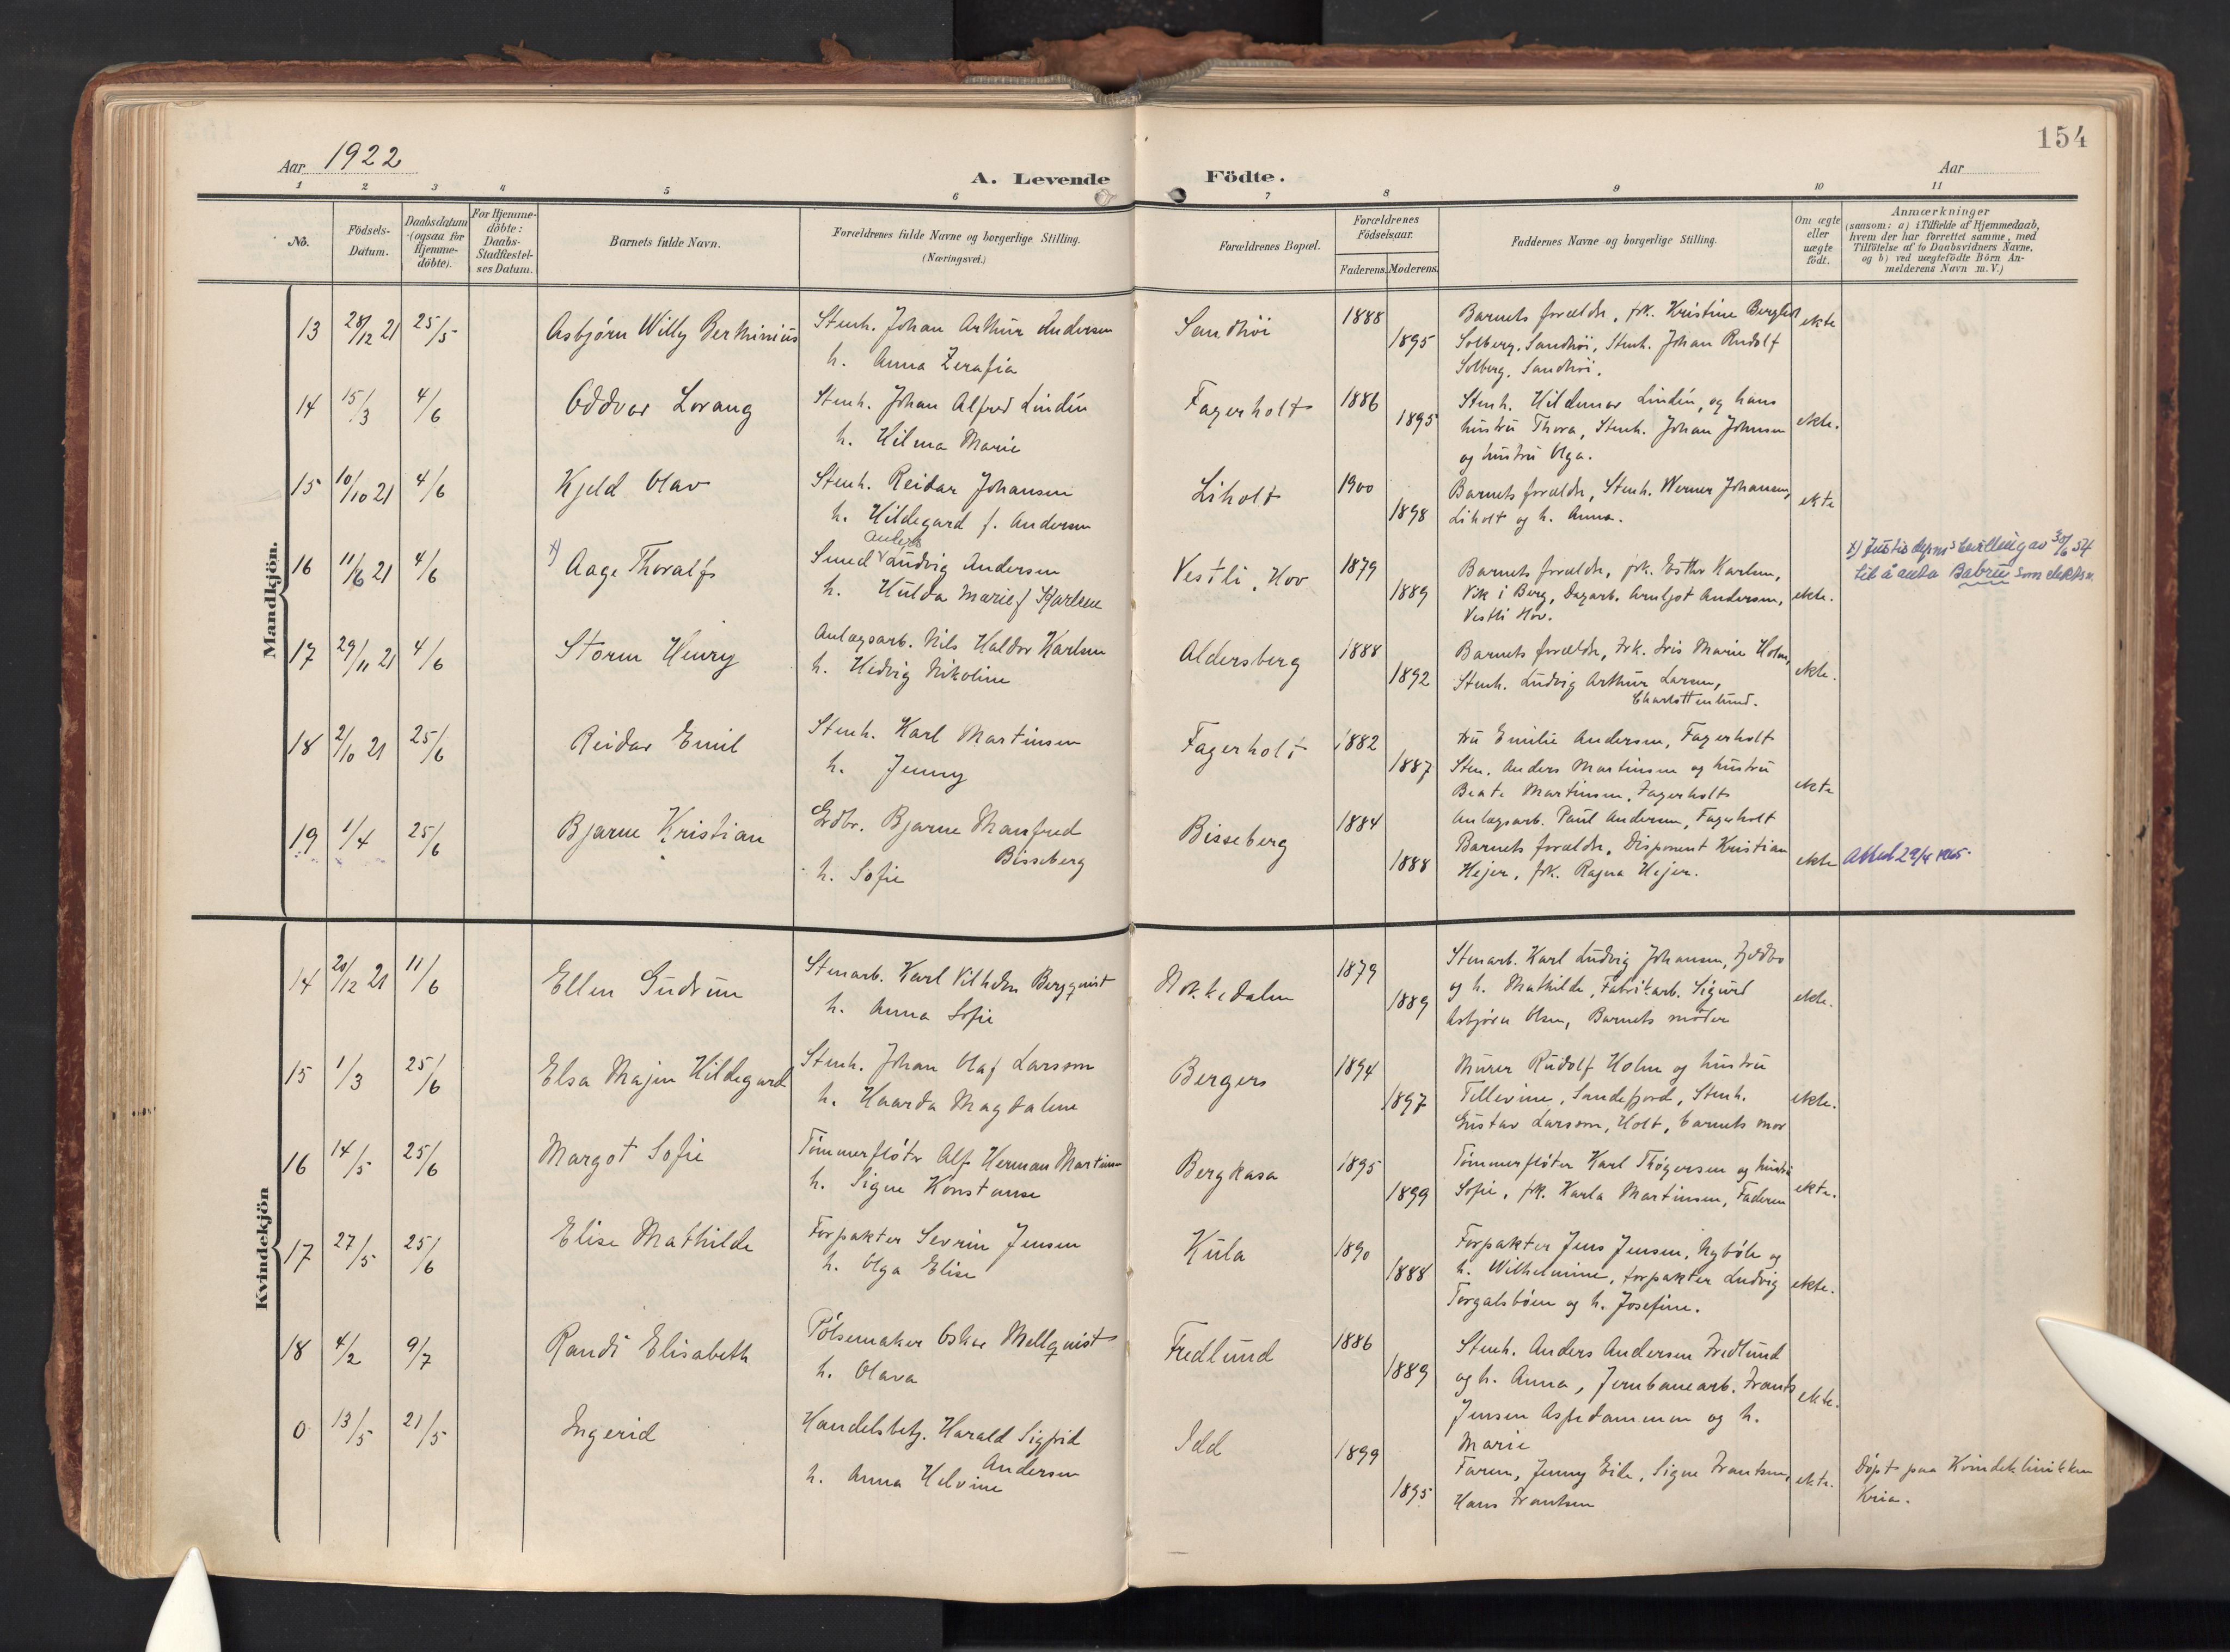 154
Aar 1922
A. Levende Födte.
Aar
1 2 3 4 5 6 7 8 9 10 11
No.
Födsels-
Datum.
Daabsdatum
(ogsaa for
Hjemme-
döbte).
For Hjemme-
döbte:
Daabs-
Stadfæstel-
ses Datum.
Barnets fulde Navn.
Forældrenes fulde Navne og borgerlige Stilling.
(Næringsvei.)
Forældrenes Bopæl.
Forældrenes
Födselsaar.
Faderens. Moderens.
Faddernes Navne og borgerlige Stilling.
Om ægte
eller
uægte
födt.
Anmærkninger
(saasom: a) i Tilfælde af Hjemmedaab,
hvem der har forrettet samme, med
Tilföielse af to Daabsvidners Navne,
og b) ved uægtefödte Börn An-
melderens Navn m. V.)
Mandkjön.
13 28/12 21 25/5 Asbjørn Willy Stenh. Johan Arthur Andersen Sandhøi 1888 Barnets forældre, frk. Kristine ekte
h. Anna Zerafia 1895 Solberg, Sandhøi, Stenh. Johan Rudolf
Solberg, Sandhøi.
14 15/3 4/6 Oddvar Lorang Stenh. Johan Alfred Lindén Fagerholt 1886 Stenh. Hildemar Lindén, og hans
h. Hilma Marie 1895 hustru Thora, Stenh. Johan Johnsen ekte.
og hustru Olga.
15 10/10 21 4/6 Kjeld Olav Stenh. Reidar Johansen Liholt 1900 Barnets forældre, Stenh. Werner Johansen, ekte
h. Hildegard f. Andersen 1898 Liholt og h. Anna.
16 11/6 21 4/6 x) Aage Thoralf Anders
Smed Ludvig Andersen Vestli, Hov 1879 Barnets forældre, frk. Esther Karlsen, x) Justisdepns bevilling av 30/6 54
h. Hulda Marie f Karlsen 1889 Vik i Berg, Dagarb. Arnljot Andersen, ekte. til å anta Babrü som slektsn.
Vestli Hov.
17 29/11 21 4/6 Storm Henry Anlægsarb. Nils Haldor Karlsen Aldersberg 1888 Barnets forældre, Frk. Iris Marie Holm,
h. Hedvig Nikoline 1892 Stenh. Ludvig Arthur Larsen, ekte.
Charlottenlund.
18 2/10 21 25/6 Reidar Emil Stenh. Karl Martinsen Fagerholt 1882 fru Emilie Andersen, Fagerholt
h. Jenny 1887 Sten. Anders Martinsen og hustru
Beate Martinsen, Fagerholt ekte
Anlægsarb. Paul Andersen, Fagerholt
19 1/4 25/6 Bjarne Kristian Grdbr. Bjarne Manfred Bisseberg 1884 Barnets forældre, Disponent Kristian
Bisseberg
h. Sofie 1888 Hejer, frk. Ragna Hejer. ekte Attest 29/4 1965.
Kvindekjön
14 20/12 21 11/6 Ellen Gudrun Stenarb. Karl Vilhelm Bergquist Nokkedalen 1879 Stenarb. Karl Ludvig Johansen, Fjeldbo
h. Anna Sofie 1889 og h. Mathilde, Fabrikarb. Sigurd ekte.
Asbjørn Olsen, Barnets moder
15 1/3 25/6 Elsa Majen Hildegard Stenh. Johan Olaf Larsson Bergers 1894 Murer Rudolf Holm og hustru
h. Haarda Magdalene 1897 Tellevine, Sandefjord, Stenh. ekte.
Gustav Larsson, Holt, barnets mor
16 14/5 25/6 Margot Sofie Tømmerfløter Alf Herman Martinsen Bergkasa 1895 Tømmerfløter Karl Thøgersen og hustru
h. Signe Konstanse 1899 Sofie, frk. Karla Martinsen, Faderen ekte.
17 27/5 25/6 Elise Mathilde Forpakter Sevrin Jensen Kula 1890 Forpakter Jens Jensen, Nybøle og
h. Olga Elise 1888 h. Wilhelmine, forpakter Ludvig ekte.
Torgalsbøen og h. Josefine.
18 4/2 9/7 Randi Elisabeth Pølsemaker Oskar Mellquist Fredlund 1886 Stenh. Anders Andersen Fredlund
h. Olava 1889 og h. Anna, Jernbanearb. Frants ekte.
Jensen Aspedammen og h.
Marie
0 13/5 21/5 Ingerid Handelsbetj. Harald Sigfrid Idd 1899 Faren, Jenny Eide, Signe Frantsen, ekte. Døpt paa Kvindeklinikken
Andersen
h. Anna Helvine 1895 Hans Frantsen Kria.